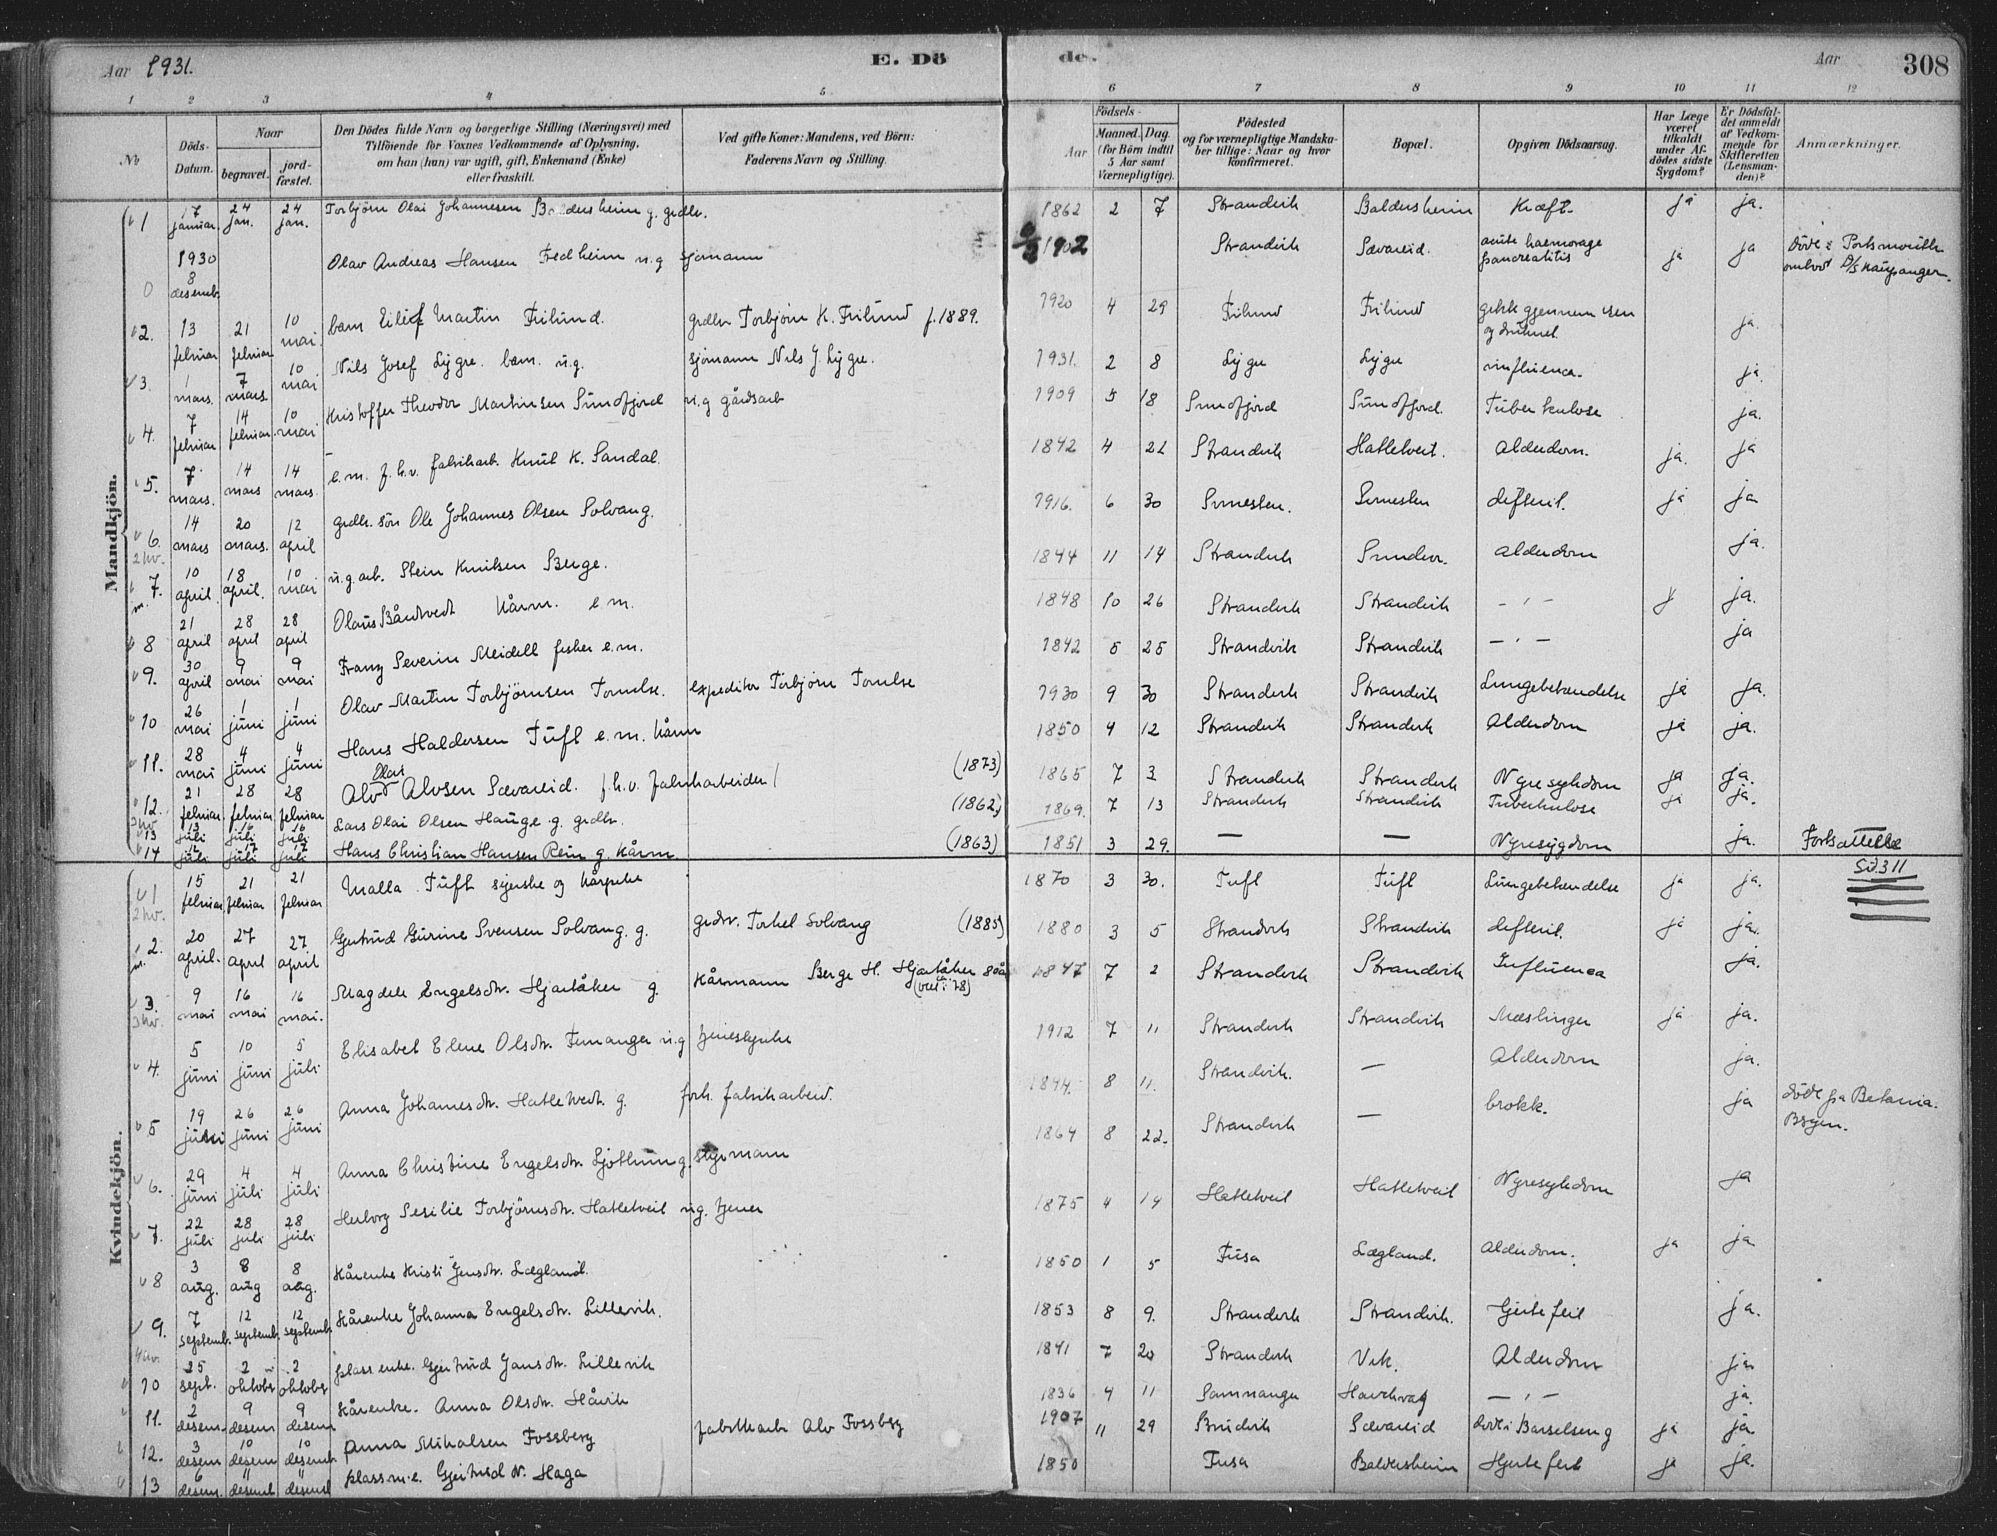 Aar 1931.
E. Dö
de.
Aar
308
1 2 3 4 5 6 7 8 9 10 11 12
No
Döds-Datum.
Naar
begravet.
jord-fæstet.
Den Dödes fulde Navn og borgerlige Stilling (Næringsvei) med
Tilföiende for Voxnes Vedkommende af Oplysning,
om han (hun) var ugift, gift, Enkemand (Enke)
eller fraskilt.
Ved gifte Koner: Mandens, ved Börn:
Faderens Navn og Stilling.
Födsels-
Aar
Maaned. Dag.
(for Börn indtil
5 Aar samt
Værnepligtige).
Födested
og for værnepligtige Mandska-
ber tillige: Naar og hvor
konfirmeret.
Bopæl.
Opgiven Dödsaarsag.
Har Læge
været
tilkaldt
under Af-
dödes sidste
Sygdom?
Er Dödsfal-
det anmeldt
af Vedkom-
mende for
Skifteretten
(Lensman-
den)?
Anmærkninger.
Mandkjön.
1 17 januar. 24 jan. 24 jan. Torbjörn Olai Johannesen Baldersheim g. grdbr. 1862 2 7 Strandvik Baldersheim Kræft. ja ja.
0 1930 8 desemb. Olav Andreas Hansen Fredheim u.g sjömann 1902 Strandvik Sævareid. acute haemorage pancreatitis ja ja döde i Portsmouth ombord D/S Kaupanger.
2. 13 februar 21 februar 10 mai barn Eilif Martin Frilund. grdbr Torbjörn K. Frilund f. 1889. 1920 4 29 Frilund Frilund gekk gjennem isen og druknet. ja.
3. 1 mars. 7 mars. 10 mai Nils Josef Lygre. barn. u.g. sjömann Nils J. Lygre. 1931. 2 8 Lygre Lygre influensa. ja.
4. 7 februar 14 februar. 10 mai Kristoffer Theodor Martinsen Sundfjord u.g gårdsarb 1909 5 18 Sundfjord Sundfjord. Tuberkulose ja.
5. 7. mars. 14 mars 14 mars. e.m. f.h.v. fabrikarb. Knut K. Sandal. 1842 4 21 Strandvik Hatletveit. Alderdom. ja. ja
6. 2 hv. 14 mars 20 mars. 12 april grdbr. sön Ole Johannes Olsen Solvang. 1916. 6 30 Simesten. Simesten difterit. ja ja
7. m. 10 april. 18 april. 10 mai u.g. arb. Stein Knutsen Berge. 1844 11 14 Strandvik alderdom ja.
8 21 april 28 april 28 april Olaus Bårdtvedt kårm. e m. 1848 10 26 Strandvik Strandvik - " - ja.
9. 30 april 9 mai 9 mai Franz Severin Meidell fisker e.m. 1842 5 25 Strandvik Strandvik — " — ja
10 26 mai 1 juni 1 juni Olav Martin Torbjörnsen Tombre. expeditör Torbjörn Tombre 1930 9 30 Strandvik Strandvik Lungebetendelse ja ja.
11. 28 mai 4 juni 4 juni Hans Haldorsen Tuft e.m. kårm 1850 4 12 Strandvik Strandvik Alderdom ja ja.
12. 3 hv. 21 februar 28 februar. 28 februar Alv Olai Alvsen Sævareid. f.h.v. fabrikarbeider (1873) 1865 7 3 Strandvik Strandvik Nyresykdom ja ja.
13 13 juli 16 juli 16 juli Lars Olai Olsen Hauge g. grdbr. (1862) 1869. 7 13 Strandvik Strandvik Tuberkulose ja ja.
14 12 juli 17 juli 17 juli Hans Christian Hansen Rein g. kårm (1863) 1851 3 29. — — Nyresygdom ja. Fortsettelse sd 311
Kvindekjön.
1 2 hv. 15 februar 21 februar 21 februar Malla Tuft syerske og kårpike 1870 3 30. Tuft Tuft Lungebetendelse ja ja.
2. m. 20 april. 27 april 27 april Gjertrud Gurine Svensen Solvang. g. grdbr. Torkel Solvang (1885) 1880 3 5 Strandvik Strandvik difterit. ja ja.
3. 3 hv. 9 mai 16 mai 16 mai. Magdele Engelsdtr. Hjartåker g. Kårmann Berge H. Hjartåker 80 år 1847 7 2 Strandvik Strandvik Influensa ja.
4. 5 juni 10 juni 5 juli Elisabet Elene Olsdtr. Finanger u.g tjenestepike 1912 7 11 Strandvik Strandvik Mæslinger ja ja.
5 19 juni 26 juni 26 juni Anna Johannesdtr. Hatletvedt. g. forh. fabrikarbeid. 1844. 8 11. Strandvik. — Alderdom ja.
6. 29 juni 4 juli 4 juli Anna Christine Engelsdtr. g. styrmann 1864 8 22. Strandvik — brokk. ja döde på Betania. Bergen.
7. 22 juli 28 juli 28 juli Herborg Sesilie Torbjörnsdtr. Hatletveit ug. tjener 1875 4 14 Hatletveit Hatletveit Nyresykdom ja
8 3 aug. 8 aug 8 aug. Kårenke Kristi Jensdtr. Lægland. 1850 1 5 Fusa Lægland. Alderdom. ja ja
9. 4 hv. 7 septemb. 12 septemb. 12 septemb. Kårenke Johanna Engelsdtr. Lillevik. 1853 8 9. Strandvik Strandvik. Hjertefeil ja.
10 25 sept. 2 oktober 2 oktober plassenke. Gjertrud Jansdtr. Lillevik 1841 7 20 Strandvik Vik. Alderdom ja.
11. 2 desem. 9 desem 9 desem Kårenke. Anna Olsdtr. Håvik 1836 4 11 Samnanger — " — ja.
12. 3 desem 10 desem 10 desemb. Anna Mikalsen Fossberg fabrikkarb Alv Fossberg 1907 11 29 Bruvik Sævareid döde i Barselseng ja ja.
13 6 desem. 11 desemb 11 desemb plassm.e. Gjertrud N. Haga 1850 Fusa Baldersheim Hjertefeil ja ja.